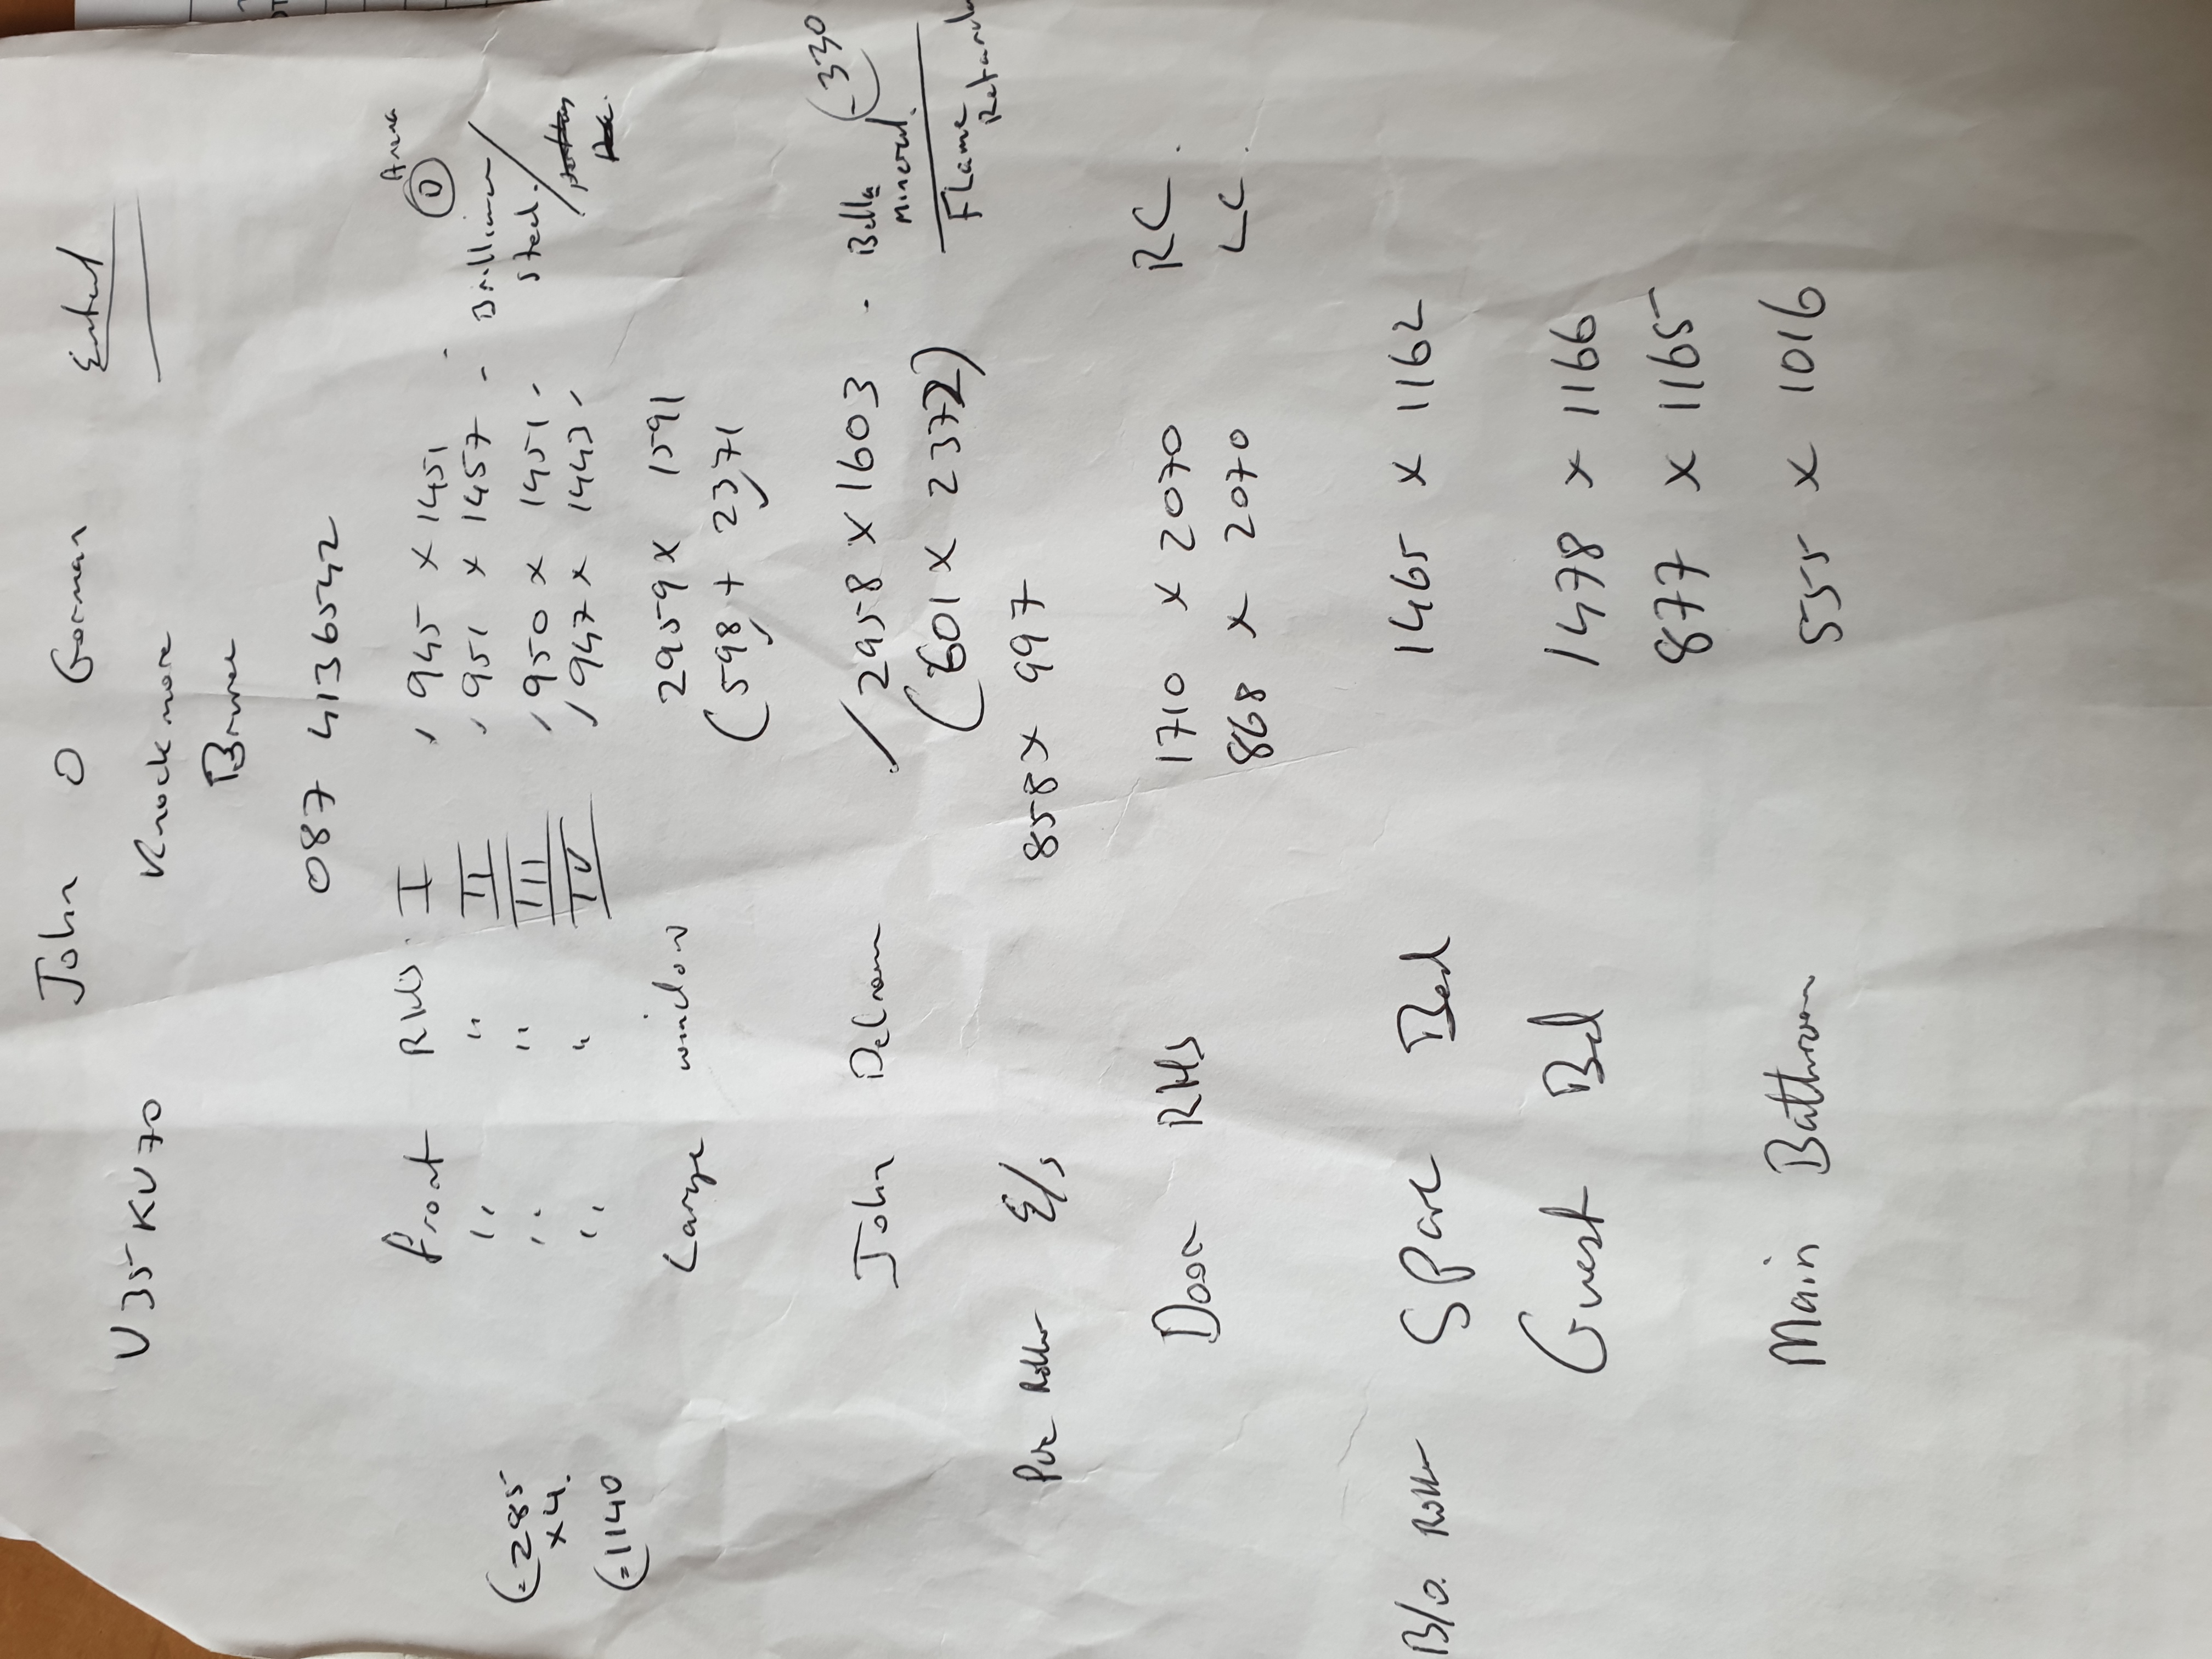 John O Gorman
V35 KV70 Knockmore
Bruree
087 4136542
Front RHS I 945 x 1451
" " II 951 x 1457 - Brillian
" " III 950 x 1451 steel
" " IV 947 x 1443
(=285
x4.
(=1140
Large window 2959 x 1591
(598 + 2371
John Bedroom 2958 x 1603 - Bella (=330
mineral
(601 x 2372) Flame
PVC Roller E/S 858 x 997
Door RHS 1710 x 2070 RC
868 x 2070 LC
B/O. Roller Spare Bed 1465 x 1162
Guest Bed 1478 x 1166
877 x 1165
Main Bathroom 555 x 1016